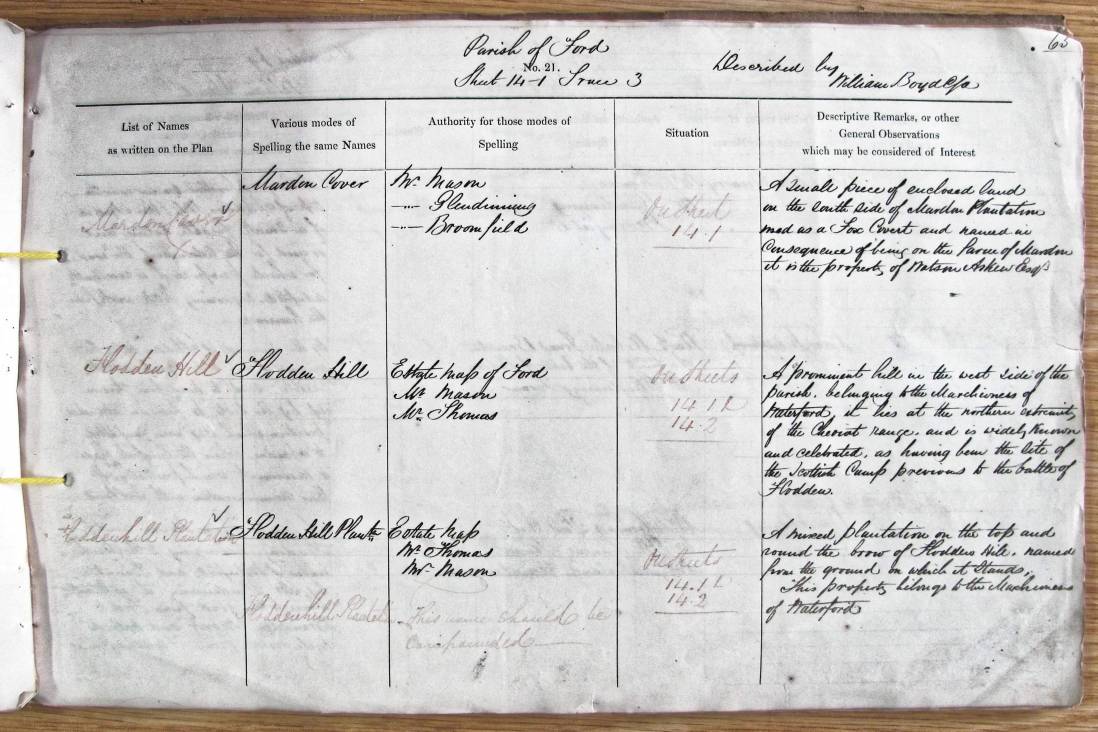 65
Parish of Ford
No. 21.
Sheet 14-1 Trace 3
Described by
William Boyd
List of Names
as written on the Plan
Various modes of
Spelling the same Names
Authority for those modes of
Spelling
Situation
Descriptive Remarks, or other
General Observations
which may be considered of Interest
Mardon
Mardon Cover
Mr. Mason
—"— Glendinning
—"— Broomfield
On Sheet
14.1
A small piece of enclosed land
on the South side of Mardon Plantation
used as a Fox Covert and named in
Consequence of being on the Farm of Mardon
it is the property of Watson Askew Esqr.
Flodden Hill
Flodden Hill
Estate Map of Ford
Mr. Mason
Mr. Thomas
On Sheets
14.1 &
14.2
A prominent hill in the west side of the
parish, belonging to the Marchioness of
Waterford, it lies at the northern extremity
of the Cheviot range, and is widely Known
and celebrated, as having been the Site of
the Scottish Camp previous to the battle of
Flodden.
Floddenhill Plantation
Flodden Hill Plantn.
Estate Map
Mr. Thomas
Mr. Mason
On Sheets
14.1 &
14.2
A mixed Plantation on the top and
round the brow of Flodden Hill, named
from the ground on which it Stands,
This property belongs to the Machioness
of Waterford
Floddenhill Plantation
This name should be
compounded